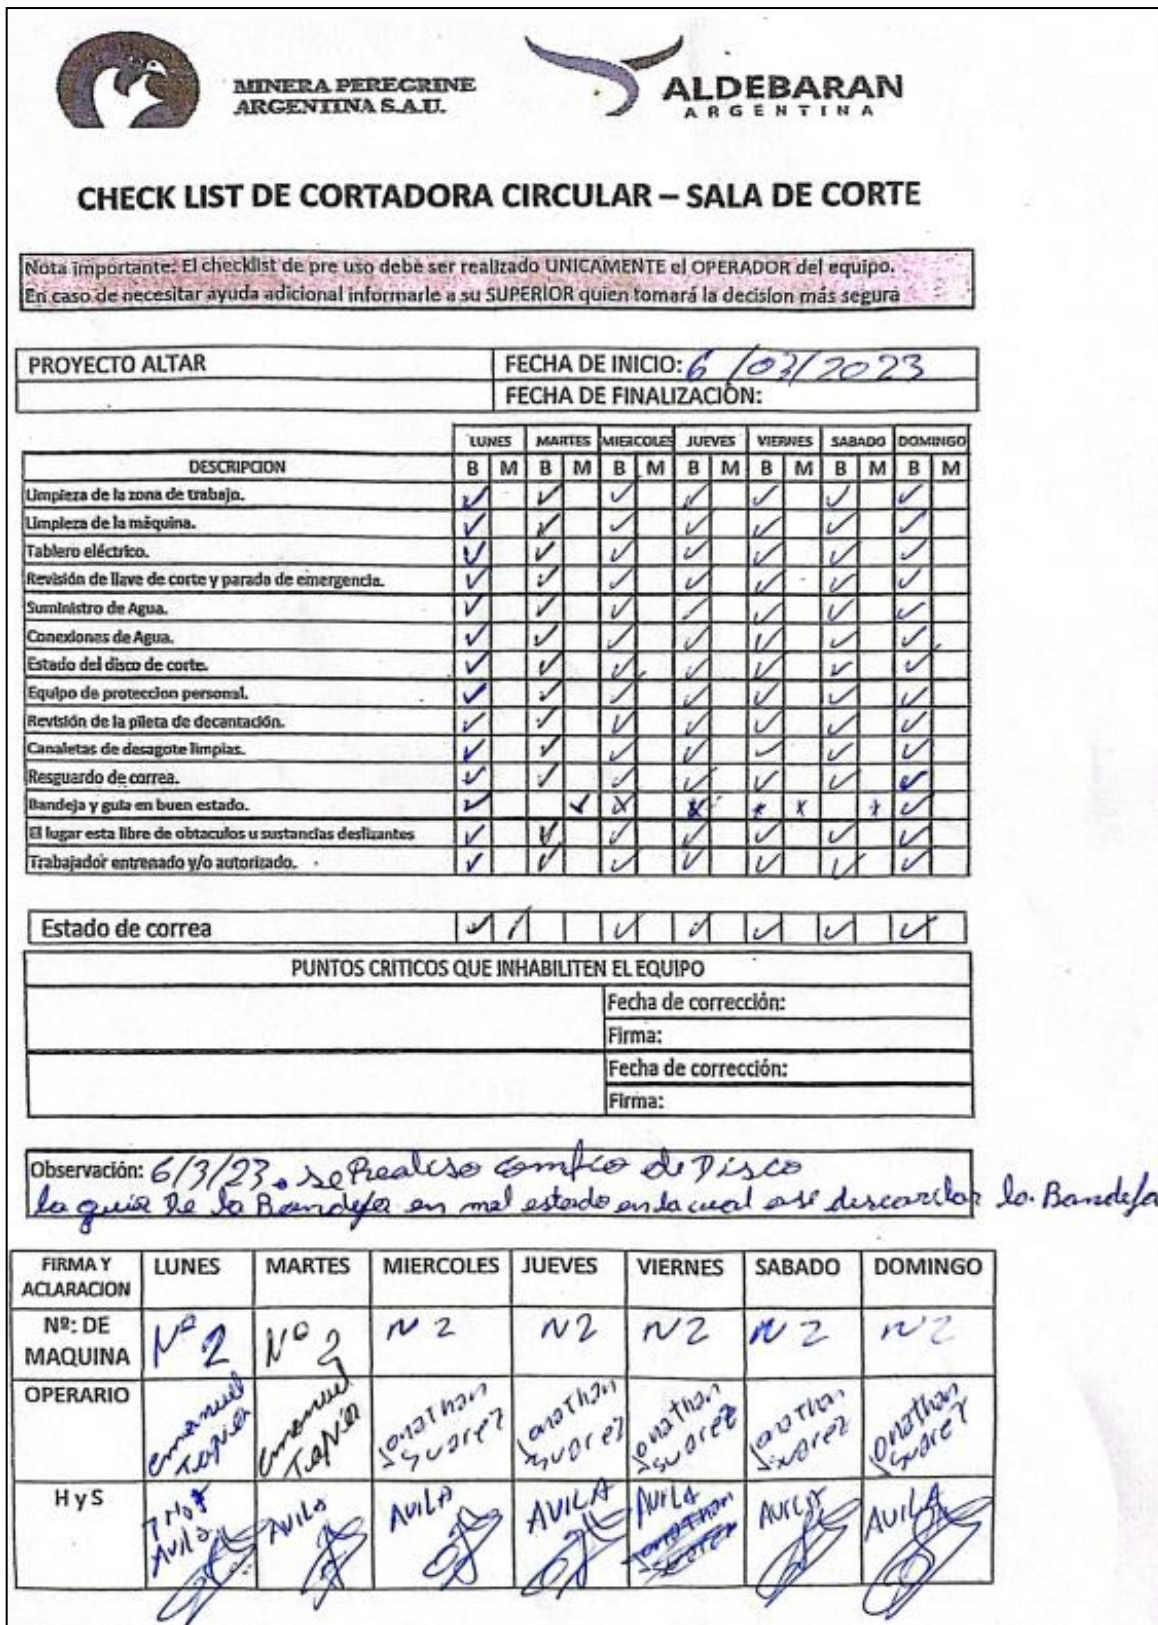 MINERA PEREGRINE
ARGENTINA S.A.U.
ALDEBARAN
ARGENTINA
CHECK LIST DE CORTADORA CIRCULAR – SALA DE CORTE
Nota importante: El checklist de pre uso debe ser realizado UNICAMENTE el OPERADOR del equipo.
En caso de necesitar ayuda adicional informarle a su SUPERIOR quien tomará la decision más segura
PROYECTO ALTAR FECHA DE INICIO: 6/03/2023
FECHA DE FINALIZACIÓN:
LUNES MARTES MIERCOLES JUEVES VIERNES SABADO DOMINGO
DESCRIPCION B M B M B M B M B M B M B M
Limpieza de la zona de trabajo. ✓ ✓ ✓ ✓ ✓ ✓ ✓
Limpieza de la máquina. ✓ ✓ ✓ ✓ ✓ ✓ ✓
Tablero eléctrico. ✓ ✓ ✓ ✓ ✓ ✓ ✓
Revisión de llave de corte y parado de emergencia. ✓ ✓ ✓ ✓ ✓ ✓ ✓
Suministro de Agua. ✓ ✓ ✓ ✓ ✓ ✓ ✓
Conexiones de Agua. ✓ ✓ ✓ ✓ ✓ ✓ ✓
Estado del disco de corte. ✓ ✓ ✓ ✓ ✓ ✓ ✓
Equipo de proteccion personal. ✓ ✓ ✓ ✓ ✓ ✓ ✓
Revisión de la pileta de decantación. ✓ ✓ ✓ ✓ ✓ ✓ ✓
Canaletas de desagote limpias. ✓ ✓ ✓ ✓ ✓ ✓ ✓
Resguardo de correa. ✓ ✓ ✓ ✓ ✓ ✓ ✓
Bandeja y guia en buen estado. ✓ ✓ x x x x x ✓
El lugar esta libre de obtaculos u sustancias deslizantes ✓ ✓ ✓ ✓ ✓ ✓ ✓
Trabajador entrenado y/o autorizado. ✓ ✓ ✓ ✓ ✓ ✓ ✓
Estado de correa ✓ / ✓ ✓ ✓ ✓ ✓
PUNTOS CRITICOS QUE INHABILITEN EL EQUIPO
Fecha de corrección:
Firma:
Fecha de corrección:
Firma:
Observación: 6/3/23. se Realiso cambio de Disco
la guia De la Bandeja en mal estado en la cual ase descarrilar la Bandeja
FIRMA Y ACLARACION LUNES MARTES MIERCOLES JUEVES VIERNES SABADO DOMINGO
Nº: DE MAQUINA Nº 2 Nº 2 N 2 N2 N 2 N 2 N 2
OPERARIO Emanuel Tapia Emanuel Tapia Jonathan Suarez Jonathan Suarez Jonathan Suarez Jonathan Suarez Jonathan Suarez
H y S Avila AVILA AVILA AVILA AVILA AVILA AVILA